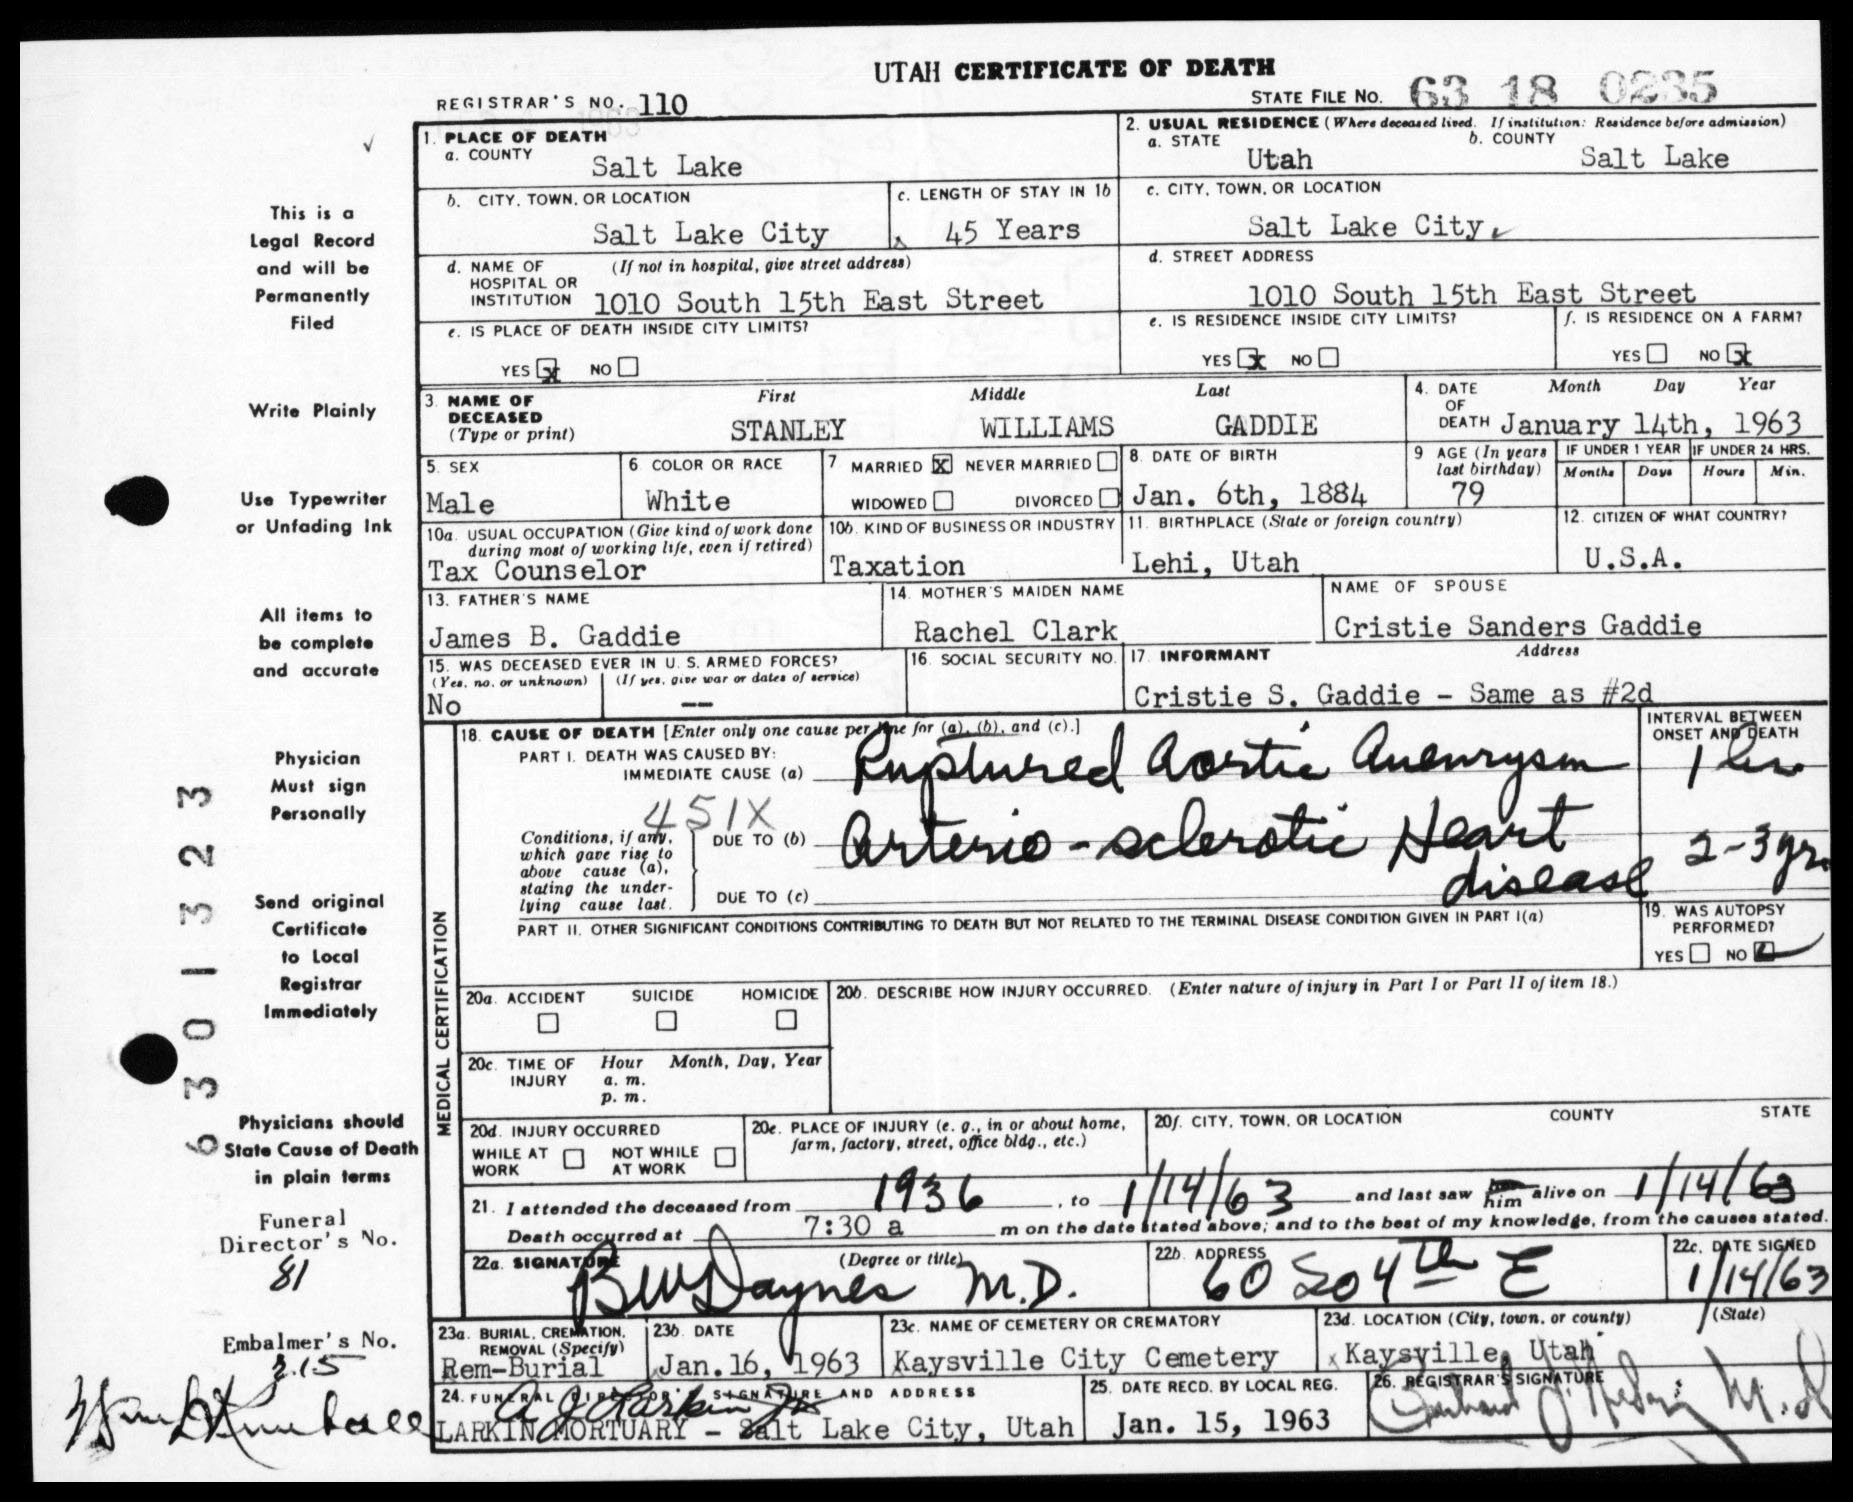 UTAH CERTIFICATE OF DEATH
REGISTRAR'S NO. 110
STATE FILE NO. 63 18 0235
1. PLACE OF DEATH
a. COUNTY
Salt Lake
2. USUAL RESIDENCE (Where deceased lived. If institution: Residence before admission)
a. STATE
Utah
b. COUNTY
Salt Lake
b. CITY, TOWN, OR LOCATION
Salt Lake City
c. LENGTH OF STAY IN 1b
45 Years
c. CITY, TOWN, OR LOCATION
Salt Lake City
d. NAME OF HOSPITAL OR INSTITUTION
(If not in hospital, give street address)
1010 South 15th East Street
d. STREET ADDRESS
1010 South 15th East Street
e. IS PLACE OF DEATH INSIDE CITY LIMITS?
YES x NO
e. IS RESIDENCE INSIDE CITY LIMITS?
YES x NO
f. IS RESIDENCE ON A FARM?
YES NO x
3. NAME OF DECEASED
(Type or print)
First Middle Last
STANLEY WILLIAMS GADDIE
4. DATE OF DEATH
Month Day Year
January 14th, 1963
5. SEX
Male
6 COLOR OR RACE
White
7 MARRIED X NEVER MARRIED
WIDOWED DIVORCED
8. DATE OF BIRTH
Jan. 6th, 1884
9 AGE (In years last birthday)
79
IF UNDER 1 YEAR
Months Days
IF UNDER 24 HRS.
Hours Min.
10a. USUAL OCCUPATION (Give kind of work done during most of working life, even if retired)
Tax Counselor
10b. KIND OF BUSINESS OR INDUSTRY
Taxation
11. BIRTHPLACE (State or foreign country)
Lehi, Utah
12. CITIZEN OF WHAT COUNTRY?
U.S.A.
13. FATHER'S NAME
James B. Gaddie
14. MOTHER'S MAIDEN NAME
Rachel Clark
NAME OF SPOUSE
Cristie Sanders Gaddie
15. WAS DECEASED EVER IN U. S. ARMED FORCES?
(Yes, no, or unknown) (If yes, give war or dates of service)
No --
16. SOCIAL SECURITY NO.
17. INFORMANT Address
Cristie S. Gaddie - Same as #2d
MEDICAL CERTIFICATION
18. CAUSE OF DEATH [Enter only one cause per line for (a), (b), and (c).]
INTERVAL BETWEEN ONSET AND DEATH
PART I. DEATH WAS CAUSED BY:
IMMEDIATE CAUSE (a) Ruptured Aortic Aneurysm 1 hr
451X
Conditions, if any, which gave rise to above cause (a), stating the underlying cause last.
DUE TO (b) Arterio-sclerotic Heart disease 2-3 yrs
DUE TO (c)
PART II. OTHER SIGNIFICANT CONDITIONS CONTRIBUTING TO DEATH BUT NOT RELATED TO THE TERMINAL DISEASE CONDITION GIVEN IN PART I(a)
19. WAS AUTOPSY PERFORMED?
YES NO
20a. ACCIDENT SUICIDE HOMICIDE
20b. DESCRIBE HOW INJURY OCCURRED. (Enter nature of injury in Part I or Part II of item 18.)
20c. TIME OF INJURY
Hour Month, Day, Year
a. m.
p. m.
20d. INJURY OCCURRED
WHILE AT WORK NOT WHILE AT WORK
20e. PLACE OF INJURY (e. g., in or about home, farm, factory, street, office bldg., etc.)
20f. CITY, TOWN, OR LOCATION COUNTY STATE
21. I attended the deceased from 1936, to 1/14/63 and last saw him alive on 1/14/63
Death occurred at 7:30 a m on the date stated above; and to the best of my knowledge, from the causes stated.
22a. SIGNATURE (Degree or title)
B W Daynes M.D.
22b. ADDRESS
60 So 4th E
22c. DATE SIGNED
1/14/63
23a. BURIAL, CREMATION, REMOVAL (Specify)
Rem-Burial
23b. DATE
Jan. 16, 1963
23c. NAME OF CEMETERY OR CREMATORY
Kaysville City Cemetery
23d. LOCATION (City, town, or county) (State)
Kaysville, Utah
24. FUNERAL DIRECTOR'S SIGNATURE AND ADDRESS
A J Larkin Jr
LARKIN MORTUARY - Salt Lake City, Utah
25. DATE RECD. BY LOCAL REG.
Jan. 15, 1963
26. REGISTRAR'S SIGNATURE
M.D
This is a
Legal Record
and will be
Permanently
Filed
Write Plainly
Use Typewriter
or Unfading Ink
All items to
be complete
and accurate
Physician
Must sign
Personally
Send original
Certificate
to Local
Registrar
Immediately
Physicians should
State Cause of Death
in plain terms
Funeral
Director's No.
81
Embalmer's No.
315
6301323